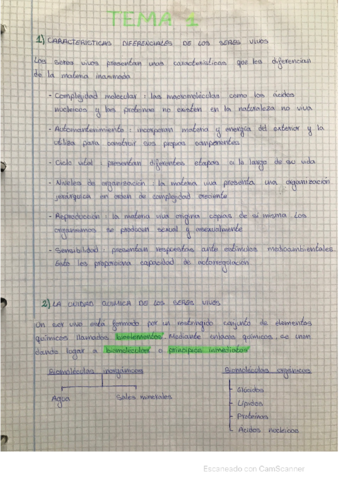 TEMA 1
1) CARACTERISTICAS DIFERENCIALES DE LOS SERES VIVOS
Los seres vivos presentan unas características que los diferencian
de la materia inanimada
- Complejidad molecular: las macromoléculas como los ácidos
nucleicos y las proteínas no existen en la naturaleza no viva
- Automantenimiento: incorporan materia y energía del exterior y la
utiliza para construir sus propios componentes
- Ciclo vital: presentan diferentes etapas a lo largo de su vida
- Niveles de organización: la materia viva presenta una organización
jerárquica en orden de complejidad creciente
- Reproducción: la materia viva origina copias de si misma. Los
organismos se producen sexual y asexualmente
- Sensibilidad: presentan respuestas ante estímulos medioambientales.
Esto les proporciona capacidad de autorregulación
2) LA UNIDAD QUIMICA DE LOS SERES VIVOS
Un ser vivo está formado por un restringido conjunto de elementos
químicos llamados bioelementos. Mediante enlaces químicos, se unen
dando lugar a biomoléculas o principios inmediatos
Biomoléculas inorgánicas
Biomoléculas orgánicas
Agua
Sales minerales
Glúcidos
Lípidos
Proteínas
Ácidos nucleicos
Escaneado con CamScanner